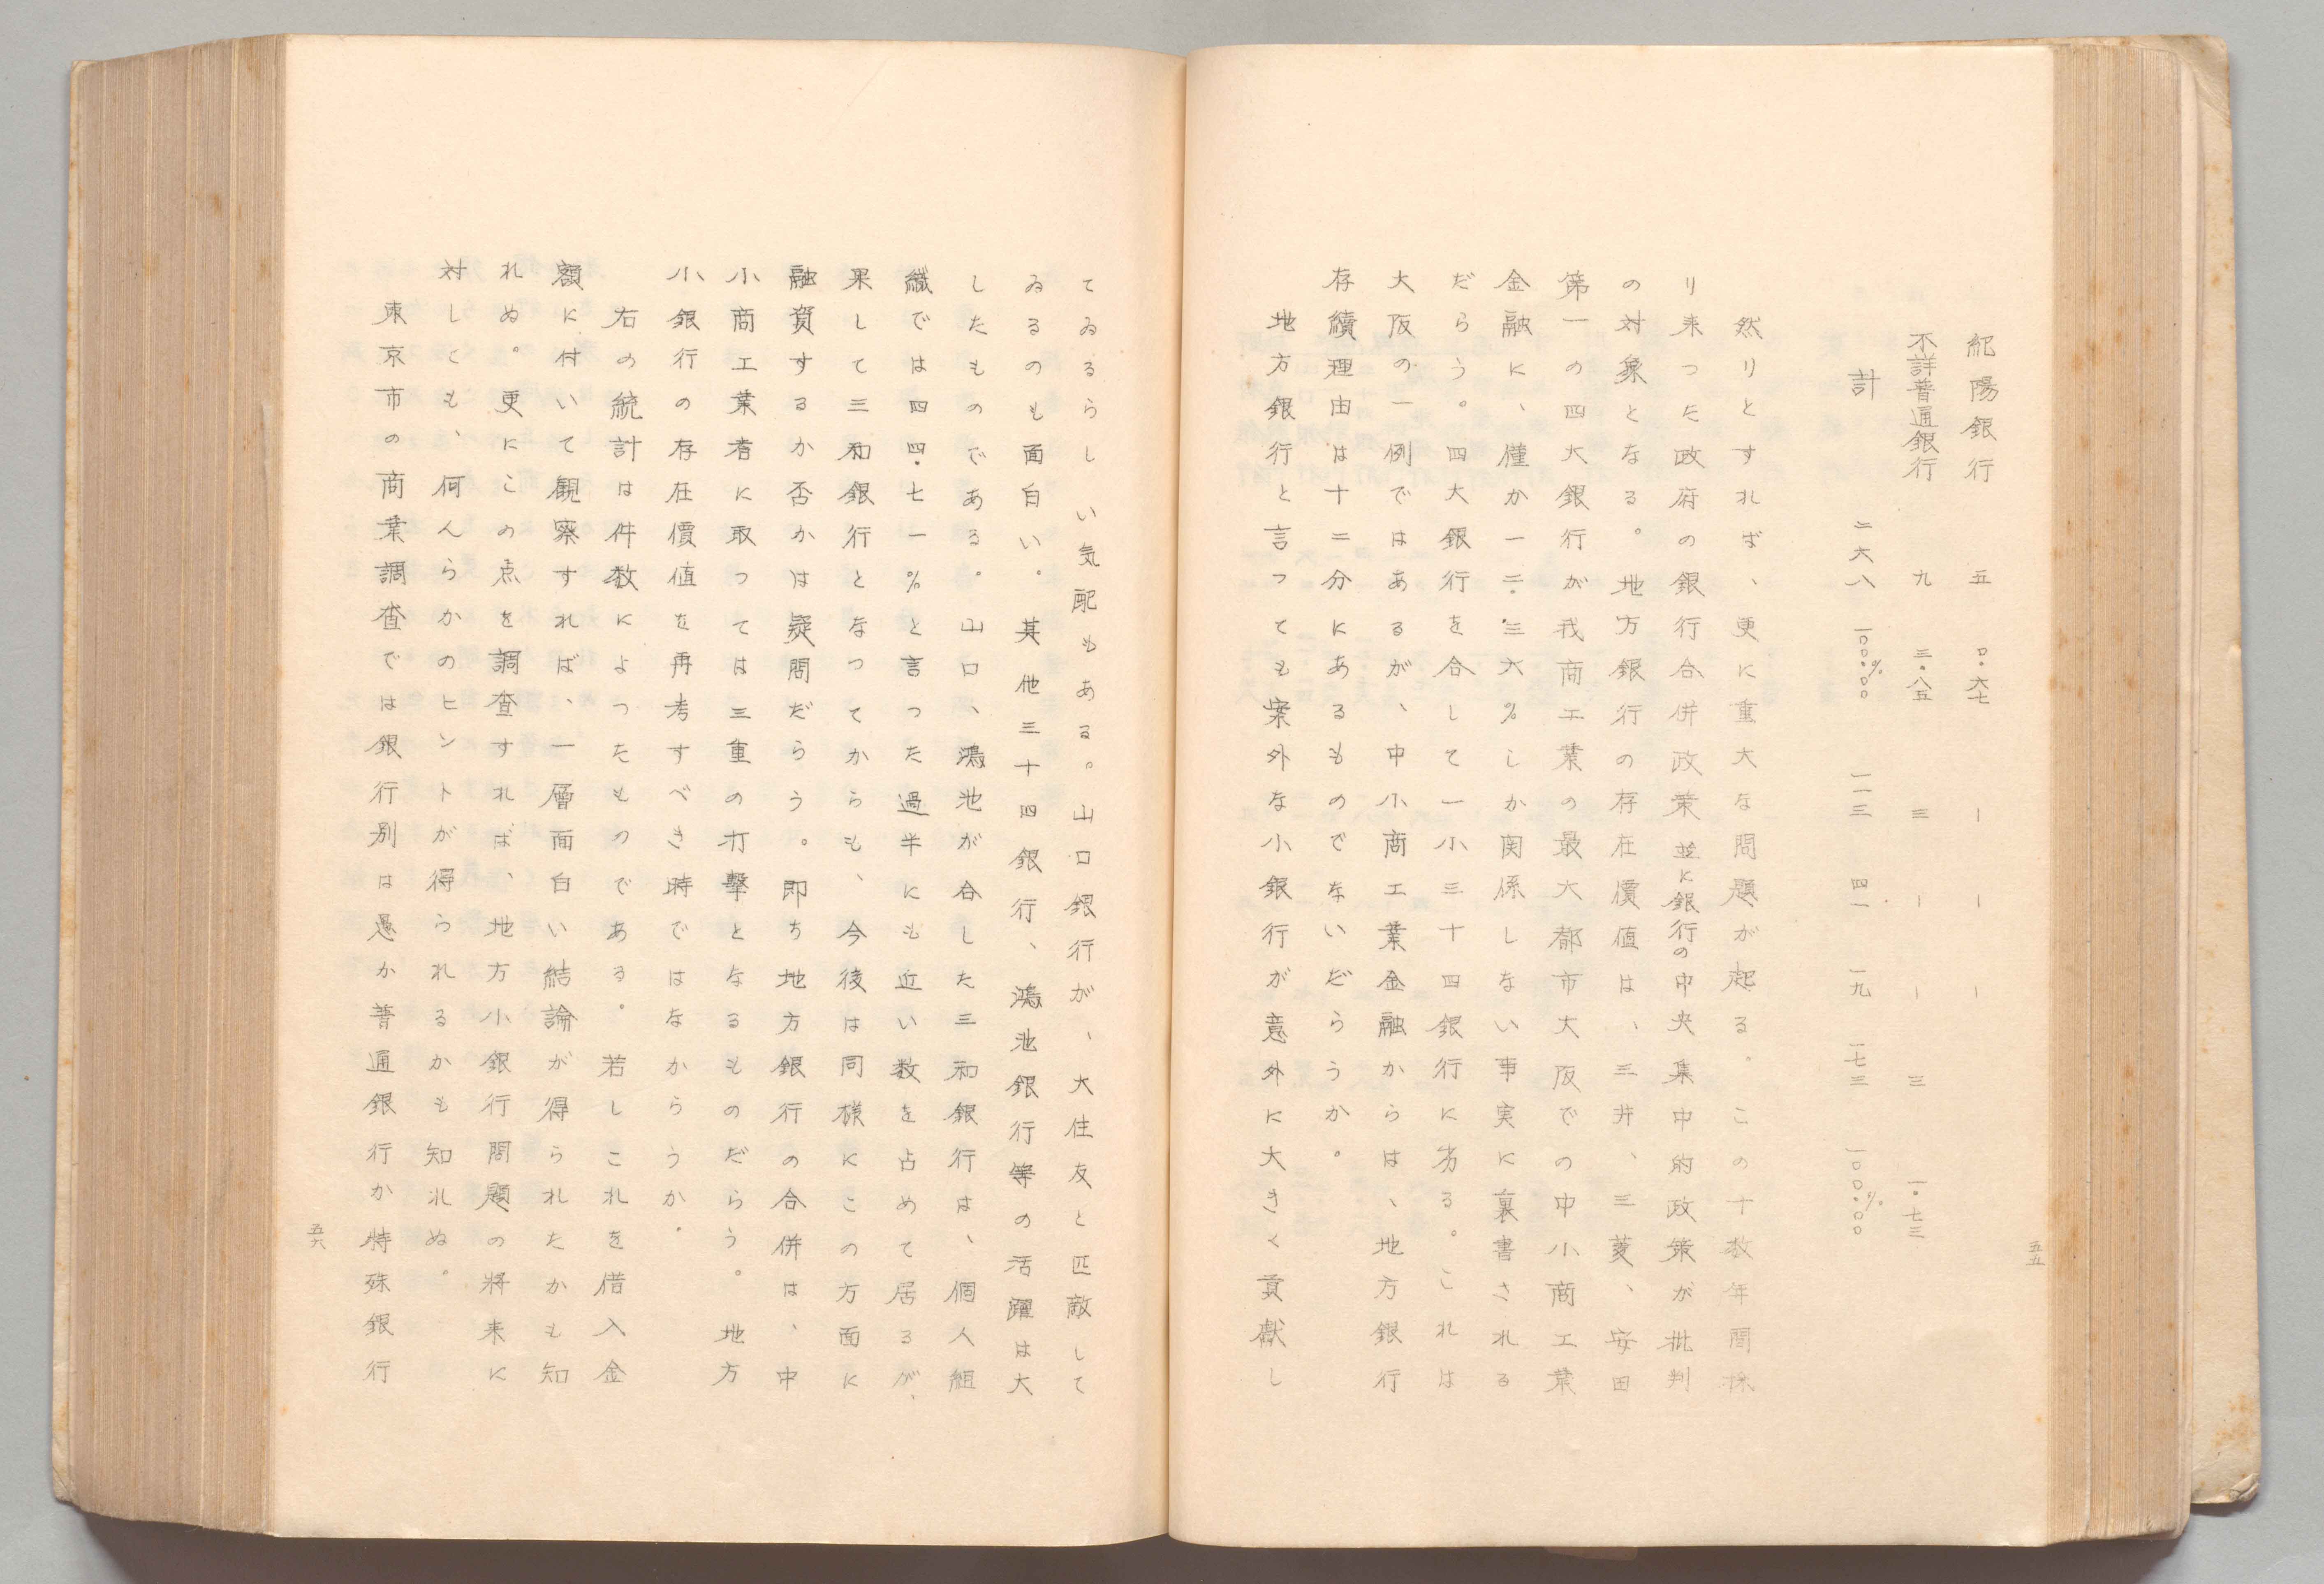 五五
紀陽銀行 五 〇・六七 ー ー ー
不詳普通銀行 九 三・八五 三 ー ー 三 一・七三
計 二六八 一〇〇・〇〇% 一一三 四一 一九 一七三 一〇〇・〇〇%
然りとすれば、更に重大な問題が起る。この十数年間採
り来つた政府の銀行合併政策並に銀行の中央集中的政策が批判
の対象となる。地方銀行の存在價値は、三井、三菱、安田
第一の四大銀行が我商工業の最大都市大阪での中小商工業
金融に、僅か一二・三六%しか関係しない事実に裏書される
だらう。四大銀行を合して一小三十四銀行に劣る。これは
大阪の一例ではあるが、中小商工業金融からは、地方銀行
存續理由は十二分にあるものでないだらうか。
地方銀行と言つても案外な小銀行が意外に大きく貢献し
てゐるらしい気配もある。山口銀行が、大住友と匹敵して
ゐるのも面白い。其他三十四銀行、鴻池銀行等の活躍は大
したものである。山口、鴻池が合した三和銀行は、個人組
織では四四・七一%と言つた過半にも近い数を占めて居るが、
果して三和銀行となつてからも、今後は同様にこの方面に
融資するか否かは疑問だらう。即ち地方銀行の合併は、中
小商工業者に取つては三重の打撃となるものだらう。地方
小銀行の存在價値を再考すべき時ではなからうか。
右の統計は件数によつたものである。若しこれを借入金
額に付いて観察すれば、一層面白い結論が得られたかも知
れぬ。更にこの点を調査すれば、地方小銀行問題の将来に
対しても、何んらかのヒントが得られるかも知れぬ。
東京市の商業調査では銀行別は愚か普通銀行か特殊銀行
五六